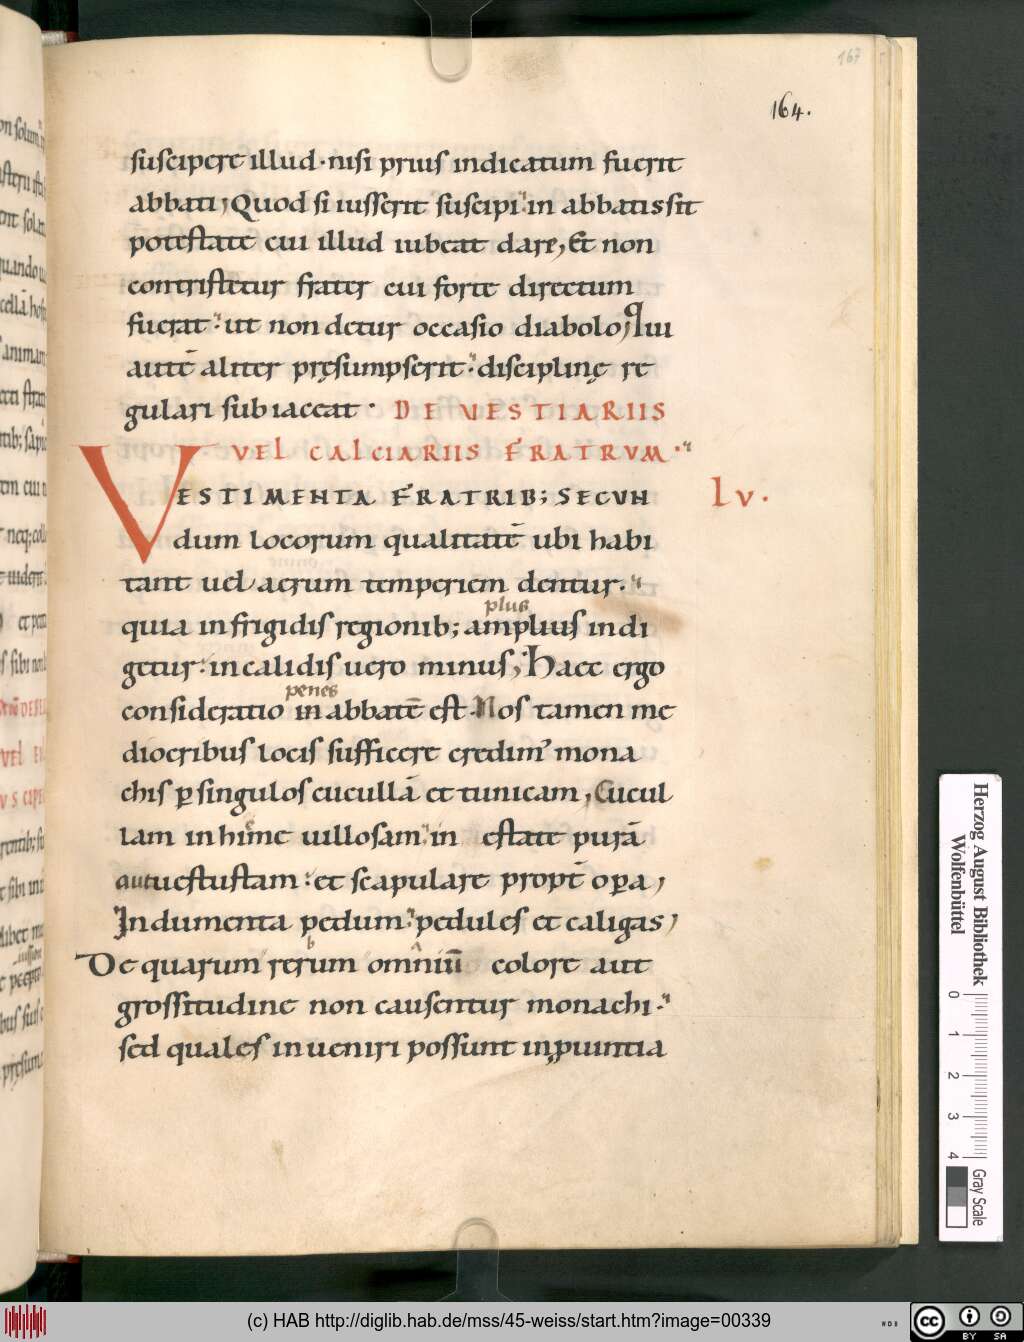 167
164.
suscipere illud · nisi prius indicatum fuerit
abbati; Quod si iusserit suscipi: in abbatis sit
potestate cui illud iubeat dare, Et non
contristetur frater cui forte directum
fuerat: ut non detur occasio diabolo; Qui
autē aliter pręsumpserit: disciplinę re
gulari subiaceat · DE VESTIARIIS
VEL CALCIARIIS FRATRVM ·
VESTIMENTA FRATRIB; SECVN
Lv.
dum locorum qualitatē ubi habi
tant uel aerum temperiem dentur.
plus
quia in frigidis regionib; amplius indi
getur: in calidis uero minus; Haec ergo
penes
consideratio in abbatē est. Nos tamen me
diocribus locis sufficere credim' mona
chis p singulos cucullā et tunicam, Cucul
lam in hieme uillosam: in estate purā
aut uestustam: et scapulare propt̄ opa,
Indumenta pedum: pedules et caligas;
De quarum rerum omniū colore aut
grossitudine non causentur monachi.
sed quales inueniri possunt in puintia
Herzog August Bibliothek
Wolfenbüttel
0 1 2 3 4
Gray Scale
(c) HAB http://diglib.hab.de/mss/45-weiss/start.htm?image=00339
WDB
cc BY SA